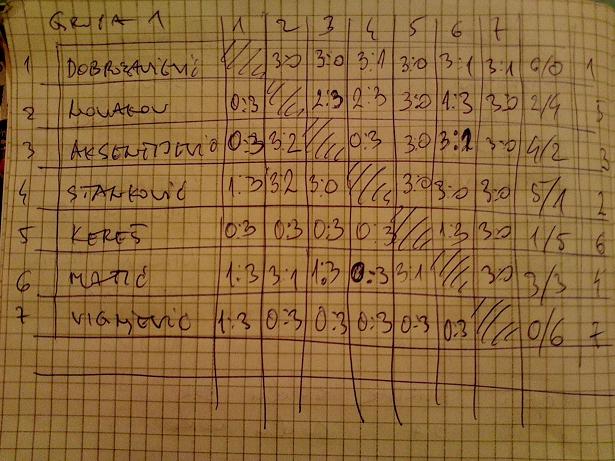 GRUPA 1 1 2 3 4 5 6 7
1 DOBROSAVLJEVIĆ 3:0 3:0 3:1 3:0 3:1 3:1 6/0 1
2 NOVAKOV 0:3 2:3 2:3 3:0 1:3 3:0 2/4 5
3 AKSENTIJEVIĆ 0:3 3:2 0:3 3:0 3:1 3:0 4/2 3
4 STANKOVIĆ 1:3 3:2 3:0 3:0 3:0 3:0 5/1 2
5 KEREŠ 0:3 0:3 0:3 0:3 1:3 3:0 1/5 6
6 MATIĆ 1:3 3:1 1:3 0:3 3:1 3:0 3/3 4
7 VIGNJEVIĆ 1:3 0:3 0:3 0:3 0:3 0:3 0/6 7